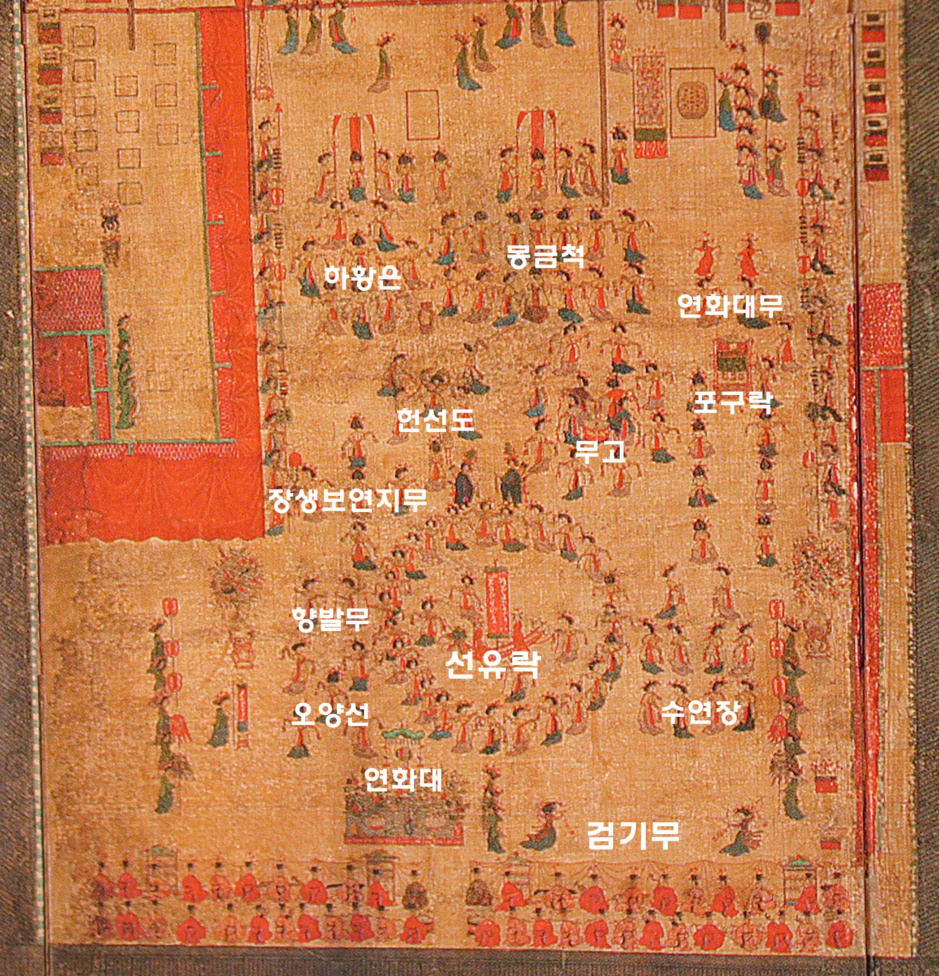 몽금척
하황은
연화대무
포구락
헌선도
무고
장생보연지무
향발무
선유락
오양선
수연장
연화대
검기무